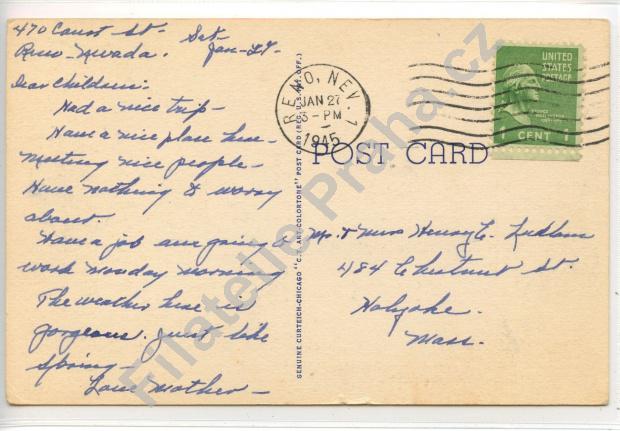 470 Court St. Sat
Reno - Nevada. Jan - 27 -
Dear Children:
Had a nice trip -
Have a nice place here -
Meeting nice people -
Have nothing to worry
about.
Have a job am going to
work Monday morning
The weather here is
gorgeous. just like
spring -
Love Mother -
RENO, NEV. 1
JAN 27
3 - PM
1945
UNITED
STATES
POSTAGE
1 CENT 1
POST CARD
GENUINE CURTEICH-CHICAGO "C.T. ART-COLORTONE" POST CARD (REG. U.S. PAT. OFF.)
Mr. & Mrs Henry C. Ludlum
484 Chestnut St.
Holyoke.
Mass.
Filatelie Praha.cz